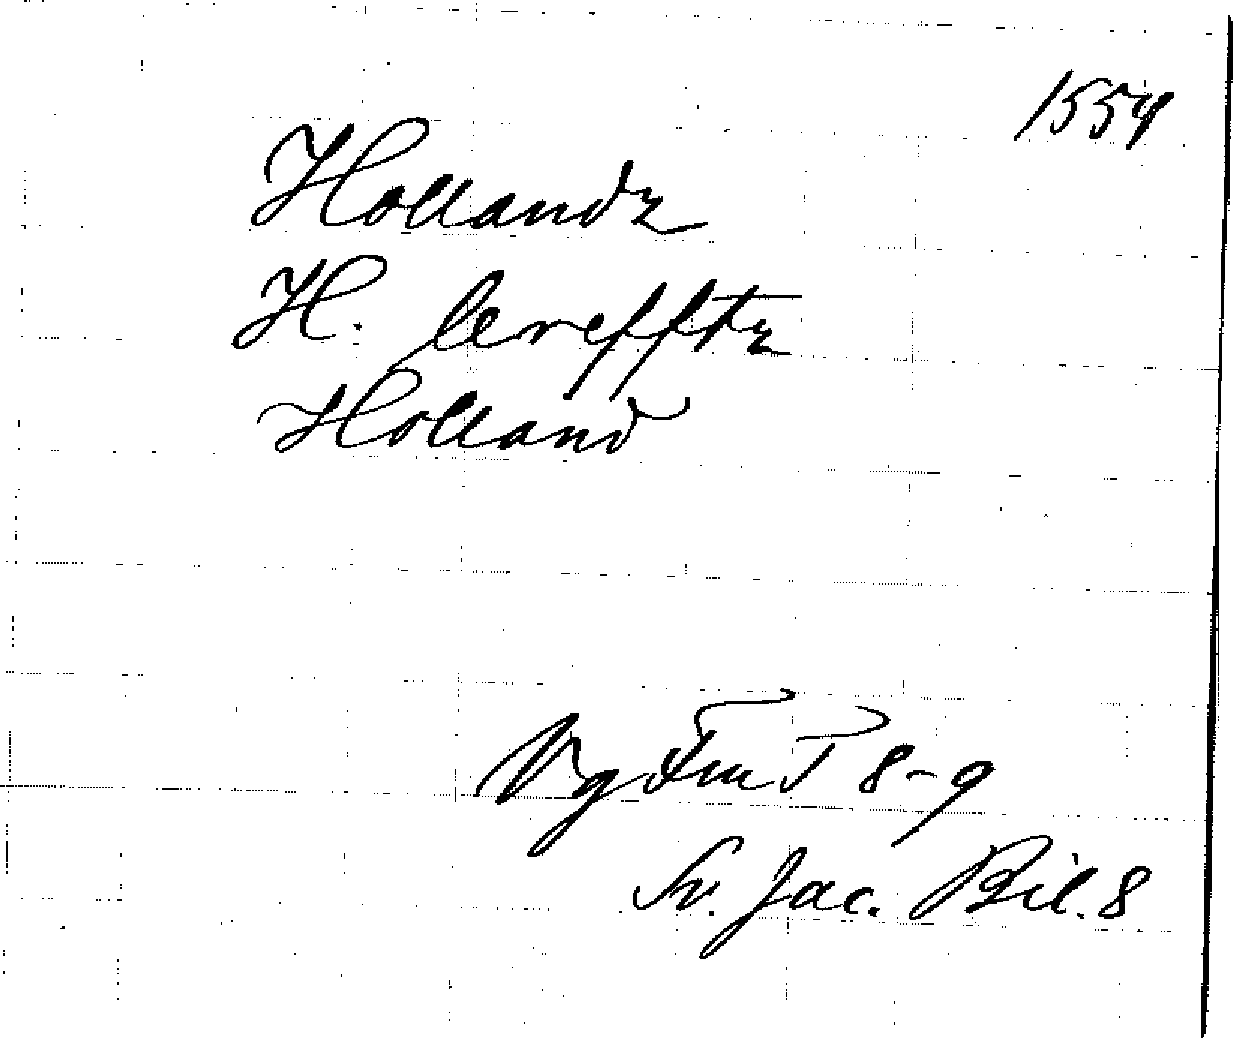 1554
Hollandz
H. lerefftz
Holland
Vg Fm T 8-9
Sv. Jac. Bil. 8